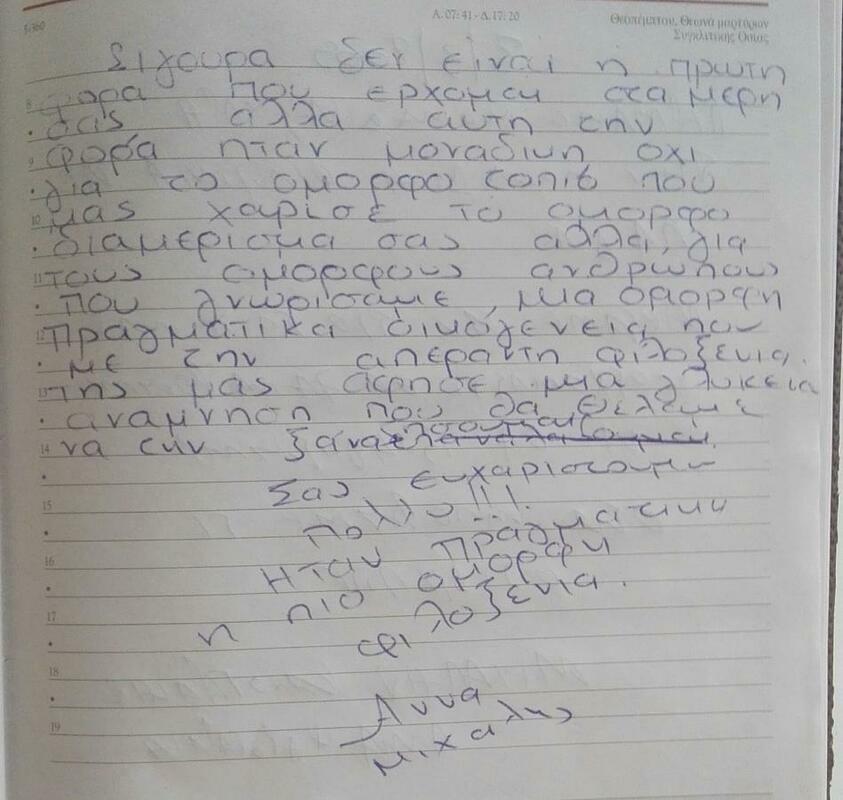 5/360
Α. 07: 41 - Δ. 17: 20
Θεοπέμπτου, Θεωνά μαρτύρων
Συγκλιτικής Οσίας
Σιγουρα δεν ειναι η πρωτη
8 φορα που ερχομαι στα μερη
σας αλλα αυτη την
9 φορά ηταν μοναδικη οχι
για το ομορφο τοπιο που
10 μας χαρισε το ομορφο
διαμερισμα σας αλλα, για
11 τους ομορφους ανθρωπους
που γνωρισαμε, μια ομορφη
12 πραγματικα οικογενεια που
με την απεραντη φιλοξενια.
13 της μας αφησε μια γλυκεια
αναμνηση που θα θελαμε
14 να την ξανα
Σας ευχαριστουμε
15
πολυ!!!
Ηταν πραγματικα
16
η πιο ομορφη
17
φιλοξενια.
18
Αννα
19
Μιχαλης